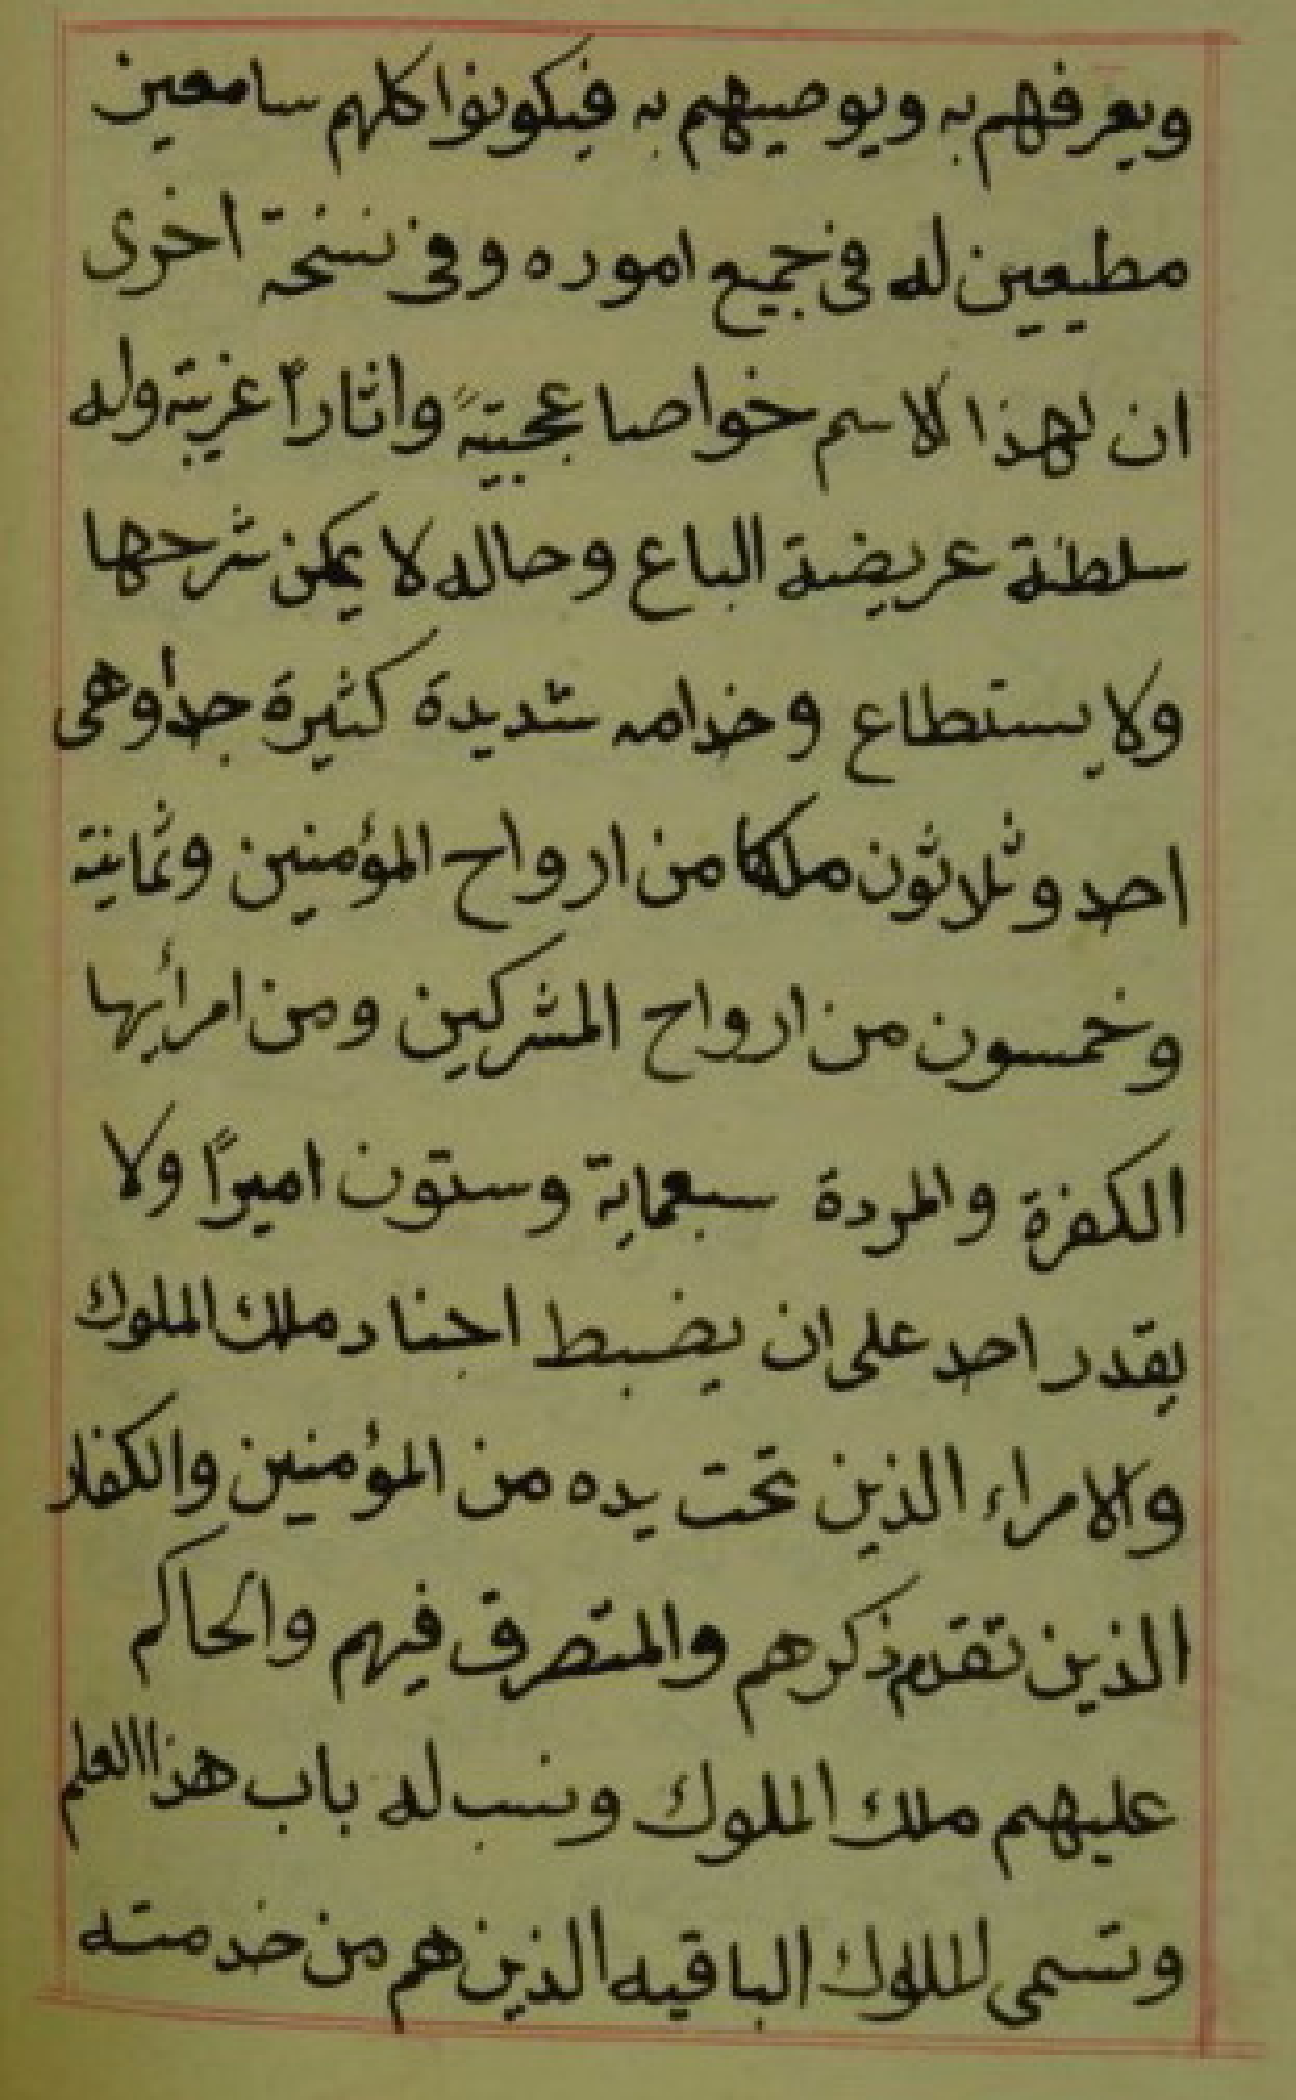 ويعرفهم به ويوصيهم به فيكونوا كلهم سامعين
مطيعين له في جميع اموره وفي نسخة اخرى
ان لهذا الاسم خواصا عجيبةً واثاراً غريبة وله
سلطنة عريضة الباع وحاله لا يمكن شرحها
ولا يستطاع وخدامه شديدة كثيرة جداً وهي
احد وثلاثون ملكا من ارواح المؤمنين وثمانية
وخمسون من ارواح المشركين ومن امرأيها
الكفرة والمردة سبعماية وستون اميراً ولا
يقدر احد على ان يضبط اجناد ملك الملوك
والامراء الذين تحت يده من المؤمنين والكفار
الذين تقدم ذكرهم والمتصرف فيهم والحاكم
عليهم ملك الملوك ونسب له باب هذا العلم
وتسمى الملوك الباقيه الذين هم من خدمته